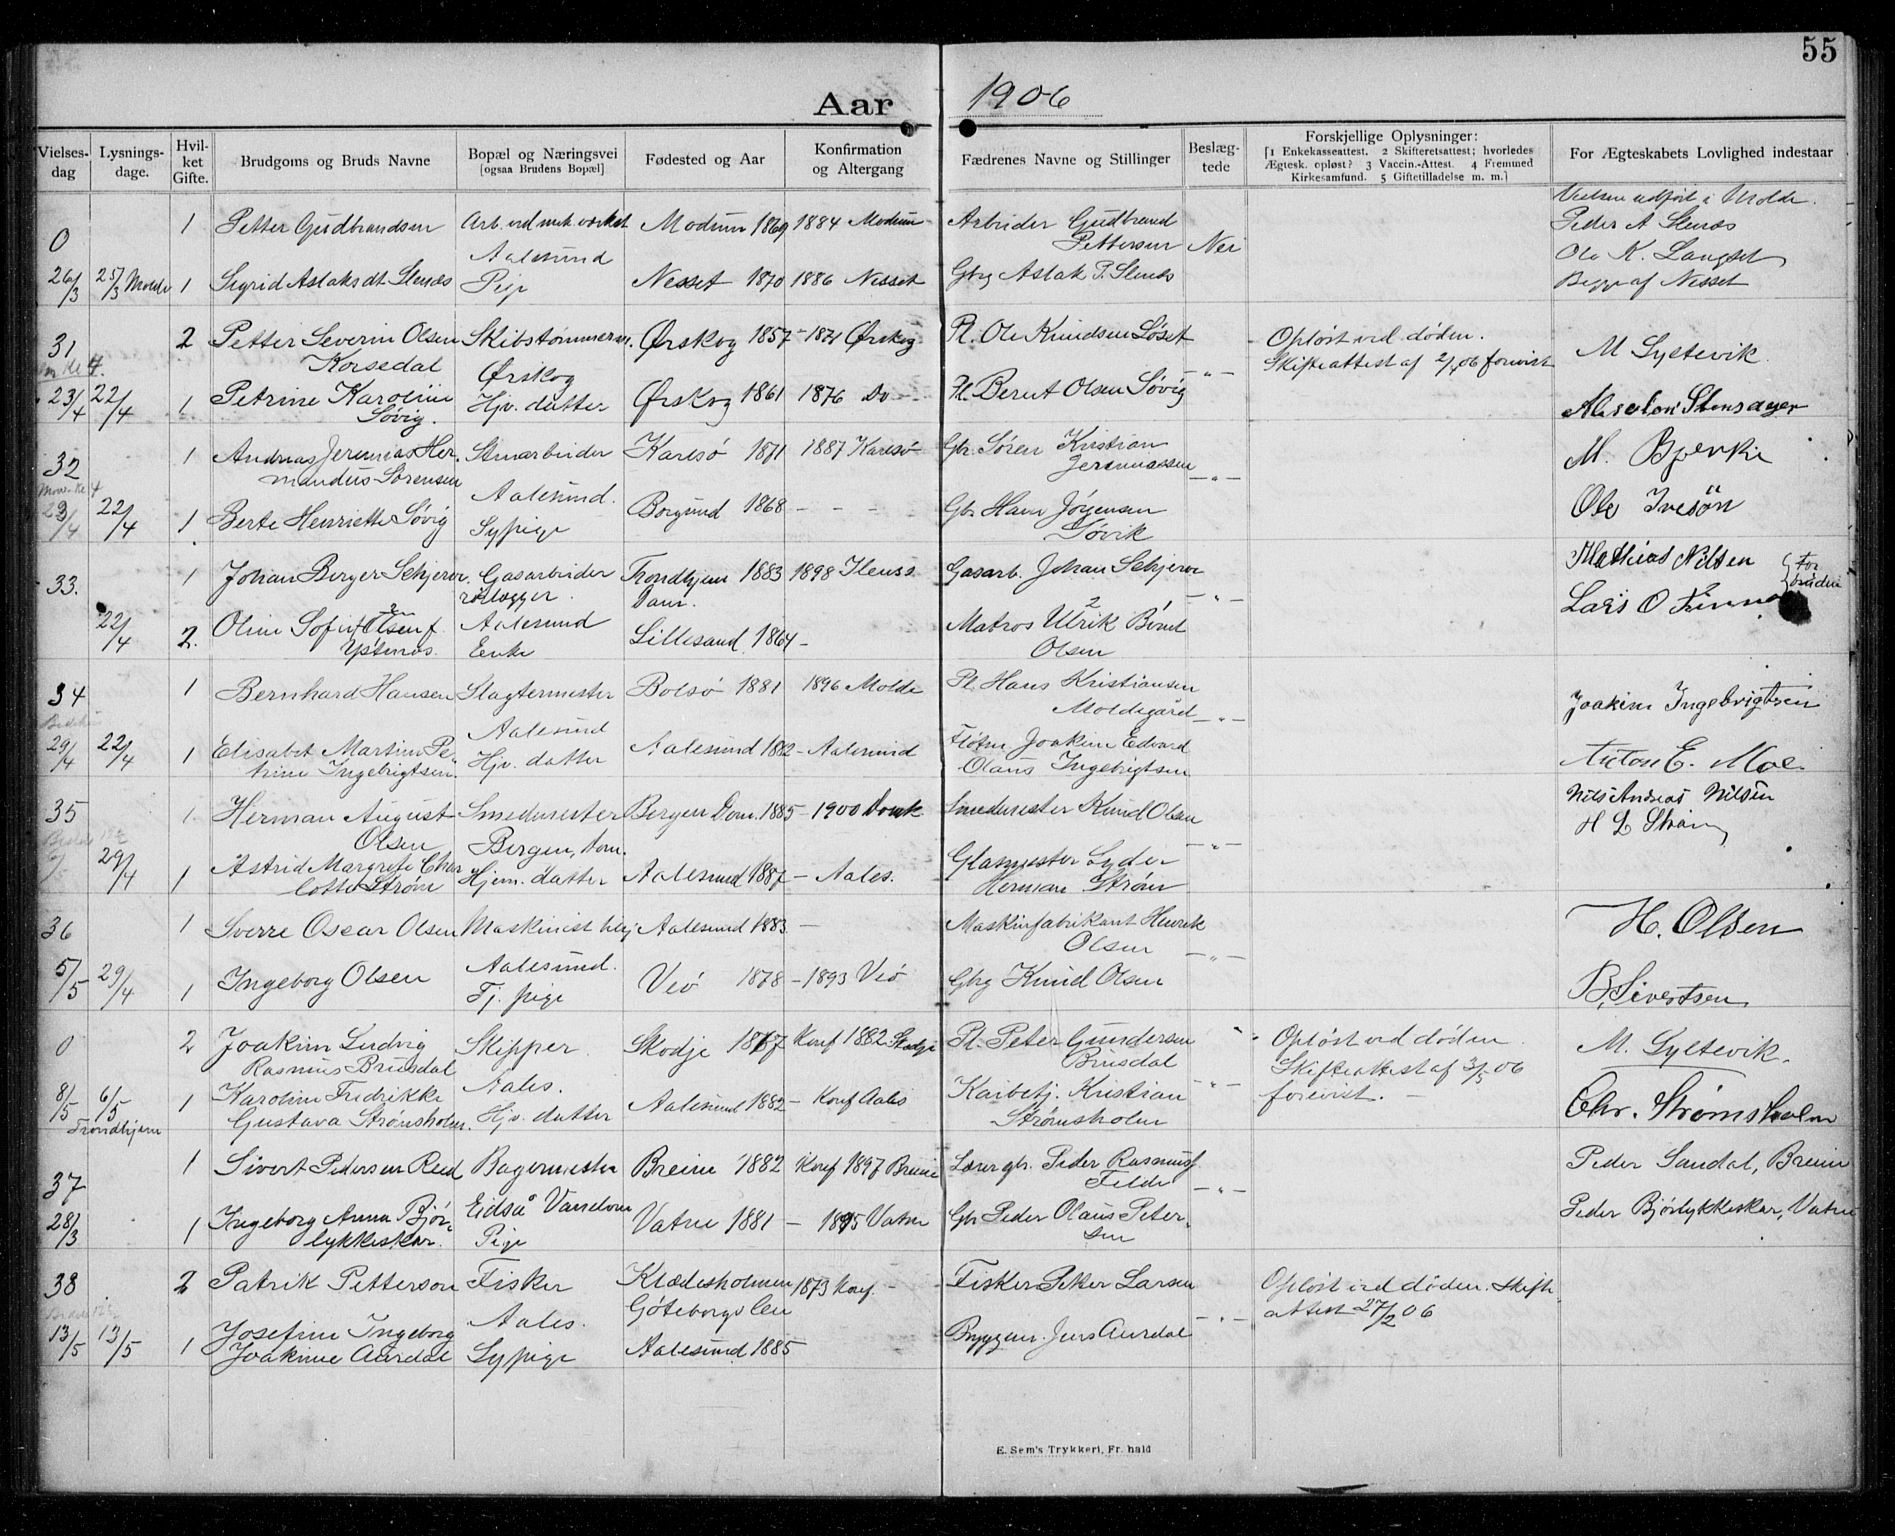 55
Aar 1906
Vielses-dag | Lysnings-dage. | Hvil-ket Gifte. | Brudgoms og Bruds Navne | Bopæl og Næringsvei [ogsaa Brudens Bopæl] | Fødested og Aar | Konfirmation og Altergang | Fædrenes Navne og Stillinger | Beslæg-tede | Forskjellige Oplysninger: [1 Enkekasseattest. 2 Skifteretsattest; hvorledes Ægtesk. opløst? 3 Vaccin.-Attest. 4 Fremmed Kirkesamfund. 5 Giftetilladelse m. m.] | For Ægteskabets Lovlighed indestaar
Vielsen udført i Molde.
0 | 1 | Petter Gudbrandsen | Arb. ved mek værkst | Modum 1869 | 1884 Modum | Arbeider Gudbrand | Peder A Slenæs
Aalesund | Pettersen | Nei | Ole K. Langset
26/3 | 25/3 Molde | 1 | Sigrid Aslaksdt Slenæs | Pige | Nesset 1870 | 1886 Nesset | Gbrg Aslak P. Slenæs | Begge af Nesset
31 | 2 | Petter Severin Olsen | Skibstømmerm. | Ørskog 1857 | 1871 Ørskog | Pl. Ole Knudsen Løset | Opløst ved døden. | M Syltevik
Korsedal | Ørskog | - " - | Skifteattest af 2/4 06 forevist
23/4 | 22/4 | 1 | Petrine Karoline | Hjv. datter | Ørskog 1861 | 1876 Do | Pl. Bernt Olsen Søvig | Stensager
Søvig.
32 | 1 | Andreas Jeremias Her | Stenarbeider | Karlsø 1871 | 1887 Karlsø | Gbr Søren Kristian | M. Bjerke
mandus Sørensen | Aalesund. | Jeremiassen | - " -
23/4 | 22/4 | 1 | Berte Henriette Søvig | Sypige | Borgund 1868 | - - - | Gbr Hans Jørgensen | Ole Ivesøn
Søvik
33. | 1 | Johan Berger Schjerve | Gasarbeider | Trondhjem 1883 | 1898 Ilens | Gasarb. Johan Schjerve | Mathias Nilsen | For
rørlægger. | Dom. | - " - | Lars O | bruden
22/4 | 2. | Oline Sofie Olsen f | Aalesund | Lillesand 1864 | - | Matros Ulrik Bernt
Ystenes. | Enke | Olsen
34 | 1 | Bernhard Hansen | Slagtermester | Bolsø 1881 | 1896 Molde | Pl. Hans Kristiansen | Joakim Ingebrigtsen
Aalesund | Moldegård | - " -
29/4 | 22/4 | 1 | Elisabet Martine Pe | Hjv. datter | Aalesund 1882 | - Aalesund | Joakim Edvard | Anton E. Moe.
trine Ingebrigtsen | Olaus Ingebrigtsen
35 | 1 | Herman August | Smedmester | Bergen Dom. 1885 | - 1900 Domk | Smedmester Knud Olsen | Nils Andreas Nilsen
Olsen | Bergen, Dom. | - " - | H L Strøm
29/4 | 1 | Astrid Margrete Char | Hjem. datter | Aalesund 1887 | - Aales. | Glasmester Lyder
lotte Strøm | Herman Strøm
36 | 1 | Sverre Oscar Olsen | Maskinist | Aalesund 1883 | - | Maskinfabrikant Henrik | H. Olsen
Aalesund. | Olsen | - " -
5/5 | 29/4 | 1 | Ingeborg Olsen | Tj. pige | Veø 1878 | - 1893 Veø | Gbrg Knud Olsen | B, Sivertsen
0 | 2 | Joakim Ludvig | Skipper. | Skodje 1867 | Konf 1882 Skodje | Pl. Peter Gundersen | - " - | Opløst ved døden. | M. Syltevik.
Rasmus Brusdal | Aales. | Brusdal | Skifteattest af 3/5 06
8/5 | 6/5 | 1 | Karoline Fredrikke | Hjv. datter | Aalesund 1882 | - Konf Aales | Kristian | - " - | forevist. - | Chr. Strømsholm
Trondhjem | Gustava Strømsholm. | Strømsholm
37 | 1 | Sivert Pedersen Reed | Bagermester | Breim 1882 | Konf 1897 Breim | Lærer gbr. Peder Rasmus | Peder Sandal, Breim
Eidså Vanelven | Felde | - " -
28/3 | 1 | Ingeborg Anna Bjør- | Pige | Vatne 1881 | - 1895 Vatne | Gbr Peder Olaus Peter- | Peder Bjørlykkeskar, Vatne
lykkeskar. | sen
38 | 2 | Patrik Petterson | Fisker | Klædesholmen | 1873 Konf. - | Fisker Peter Larsen | Opløst ved døden. Skifte
Aales. | Göteborgs len | - " - | attest 27/2 06
13/5 | 13/5 | 1 | Josefine Ingeborg | Sypige | Aalesund 1885 | Bryggem. Jens Aurdal
Joakime Aurdal
E. Sem's Trykkeri, Fr. hald